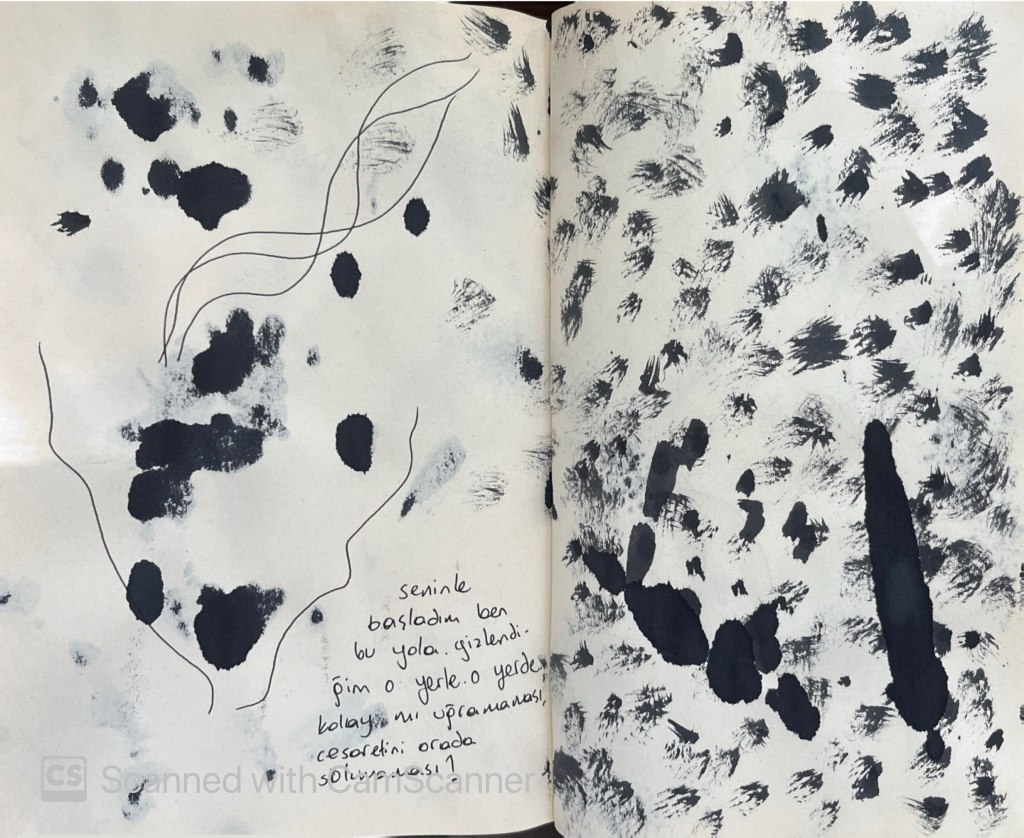 seninle
başladım ben
bu yola. gizlendi-
ğim o yerle. o yerde
kolay mı uğramaması,
cesaretini orada
solumaması?
CS Scanned with CamScanner